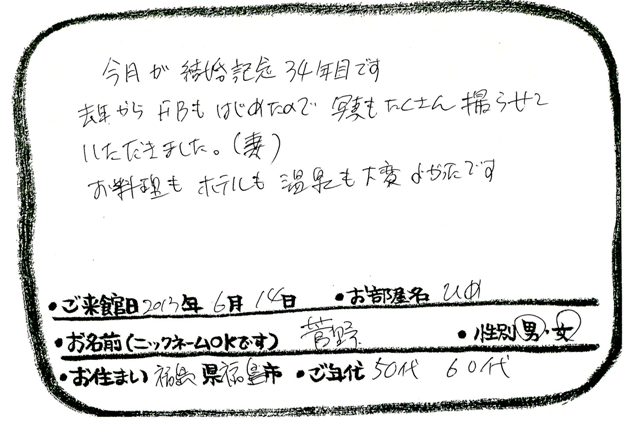 今月が 結婚記念 34年目です
去年から FBもはじめたので 写真もたくさん 撮らせて
いただきました。(妻)
お料理も ホテルも 温泉も 大変 よかったです
・ご来館日 2013年 6月 14日 ・お部屋名 ひめ
・お名前(ニックネームOKです) 菅野 ・性別 男・女
・お住まい 福島県福島市 ・ご年代 50代 60代